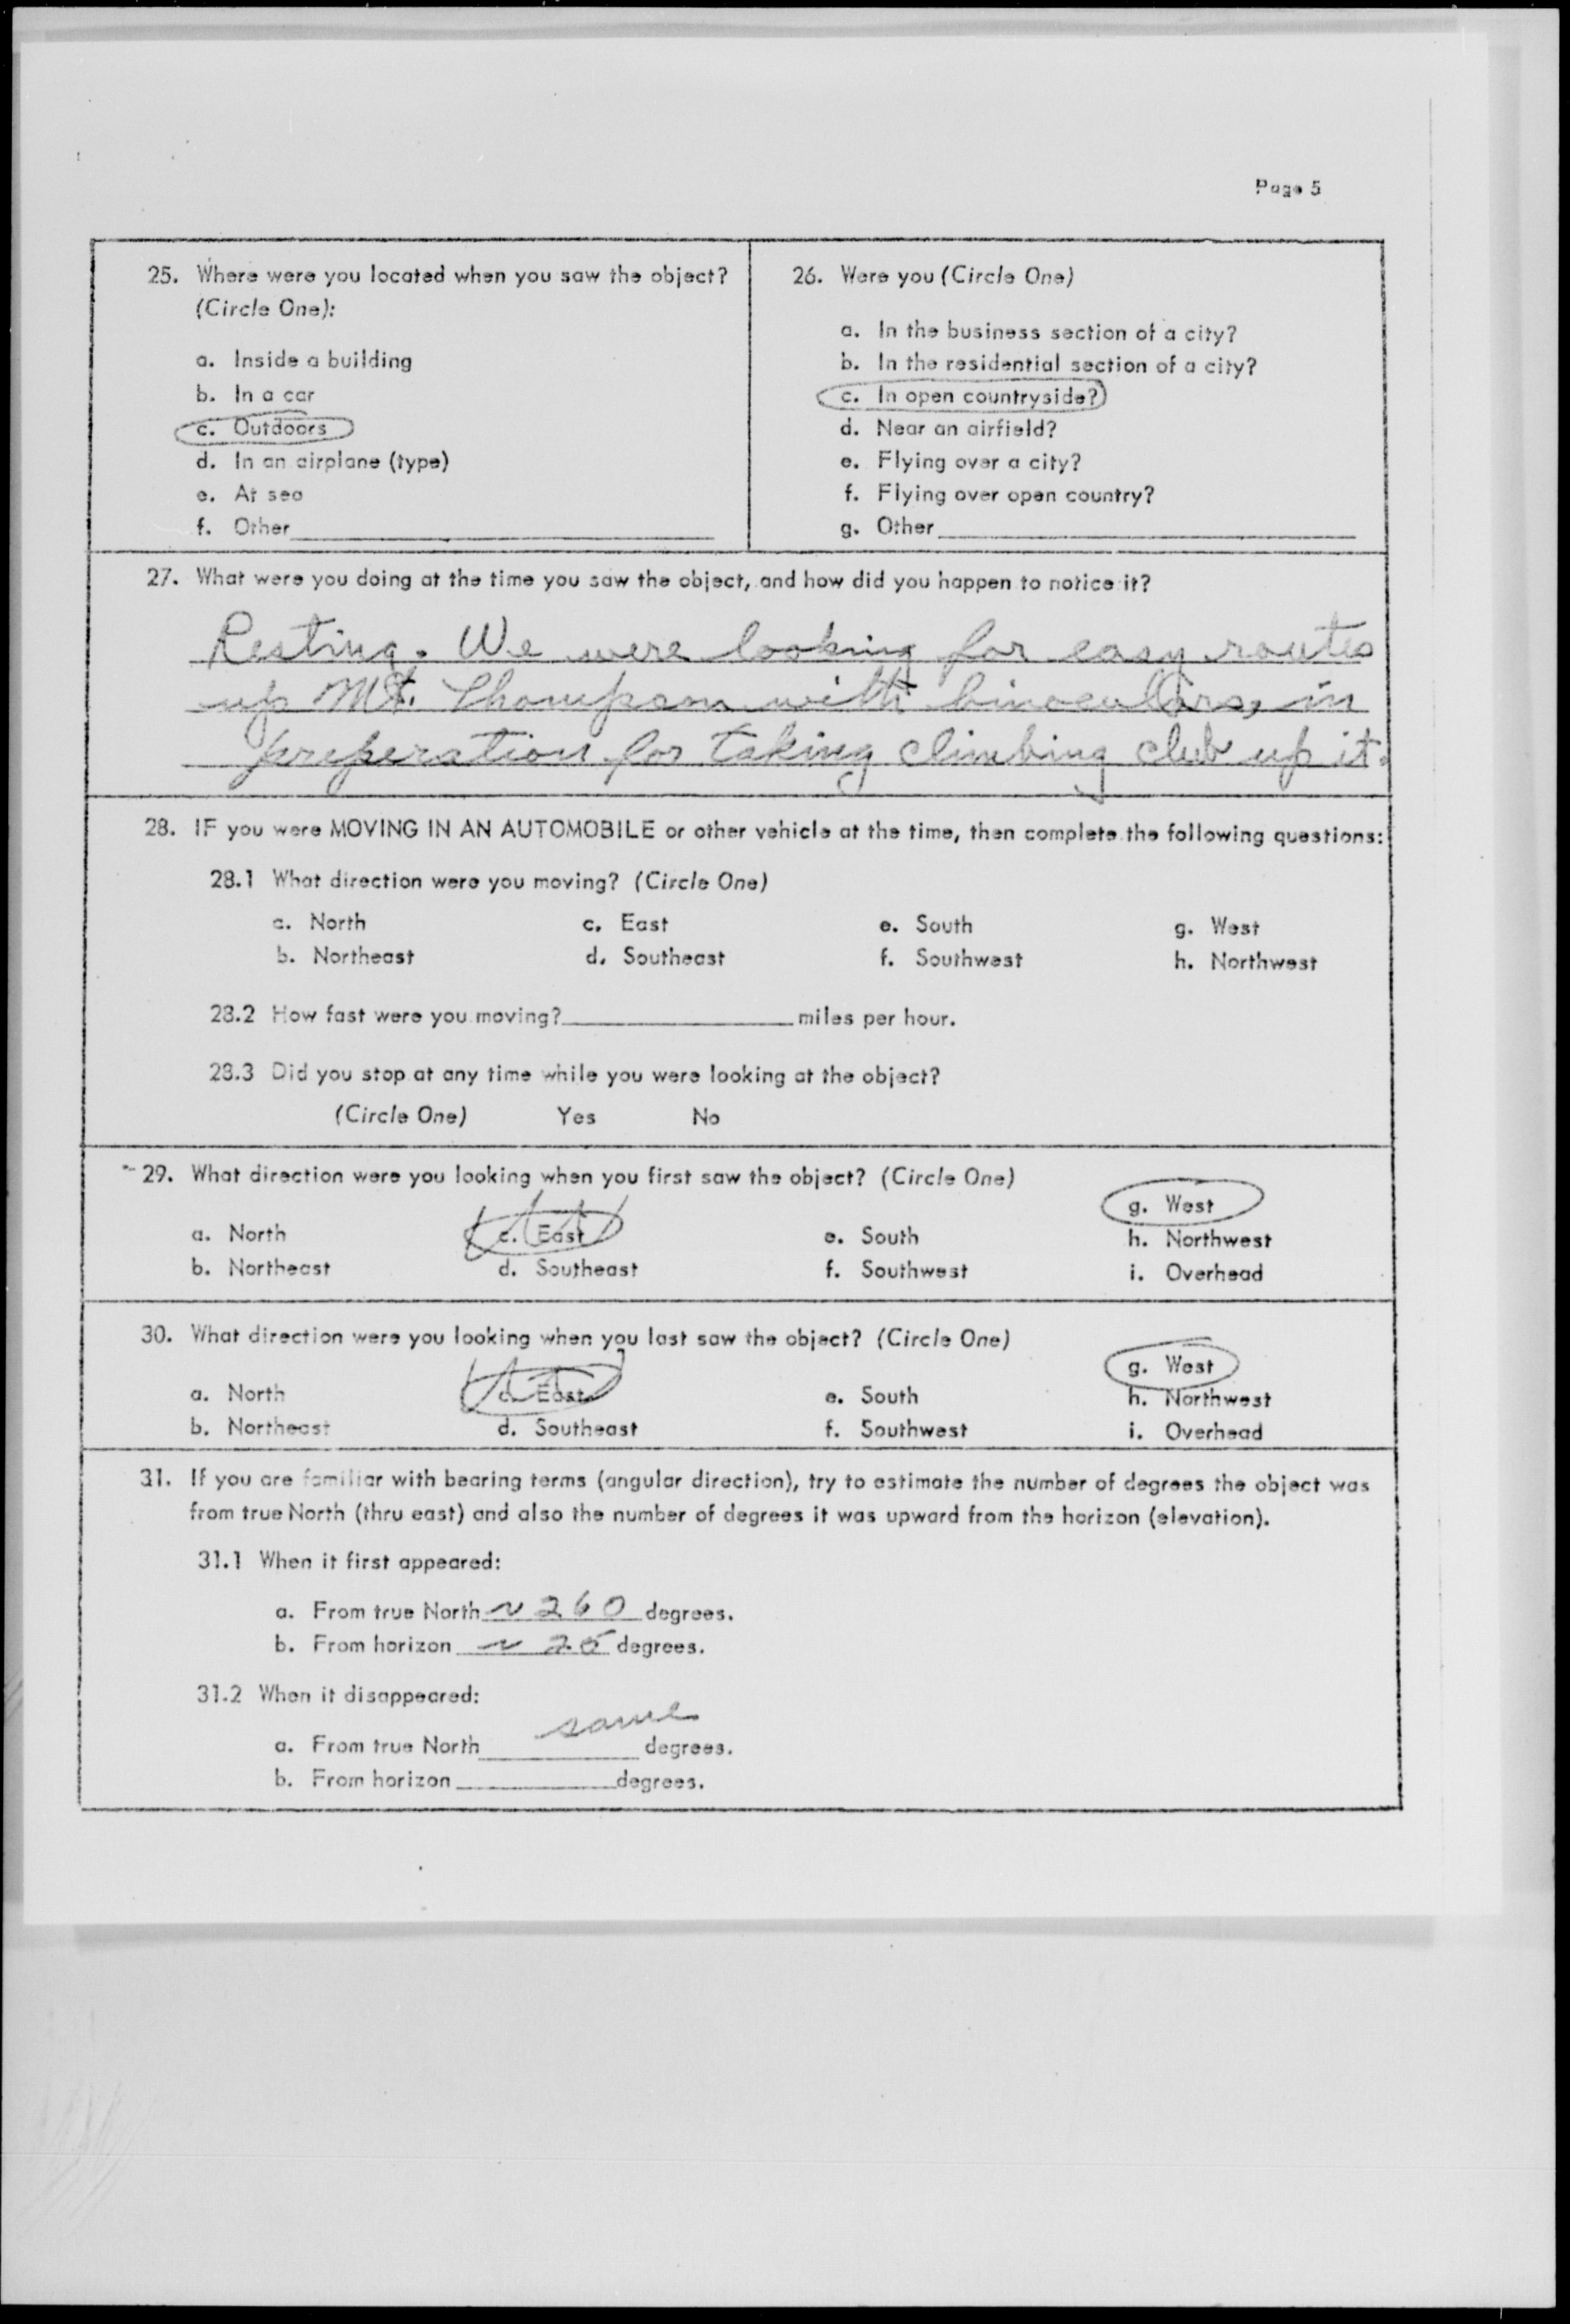 Page 5
25. Where were you located when you saw the object?
(Circle One):
a. Inside a building
b. In a car
c. Outdoors
d. In an airplane (type)
e. At sea
f. Other
26. Were you (Circle One)
a. In the business section of a city?
b. In the residential section of a city?
c. In open countryside?
d. Near an airfield?
e. Flying over a city?
f. Flying over open country?
g. Other
27. What were you doing at the time you saw the object, and how did you happen to notice it?
Resting. We were looking for easy routes
up Mt. Thompson with binoculars, in
preperation for taking climbing club up it.
28. IF you were MOVING IN AN AUTOMOBILE or other vehicle at the time, then complete the following questions:
28.1 What direction were you moving? (Circle One)
a. North c. East e. South g. West
b. Northeast d. Southeast f. Southwest h. Northwest
28.2 How fast were you moving? miles per hour.
28.3 Did you stop at any time while you were looking at the object?
(Circle One) Yes No
29. What direction were you looking when you first saw the object? (Circle One)
g. West
a. North c. East e. South h. Northwest
b. Northeast d. Southeast f. Southwest i. Overhead
30. What direction were you looking when you last saw the object? (Circle One)
g. West
a. North c. East e. South h. Northwest
b. Northeast d. Southeast f. Southwest i. Overhead
31. If you are familiar with bearing terms (angular direction), try to estimate the number of degrees the object was
from true North (thru east) and also the number of degrees it was upward from the horizon (elevation).
31.1 When it first appeared:
a. From true North ~ 260 degrees.
b. From horizon ~ 25 degrees.
31.2 When it disappeared:
same
a. From true North degrees.
b. From horizon degrees.